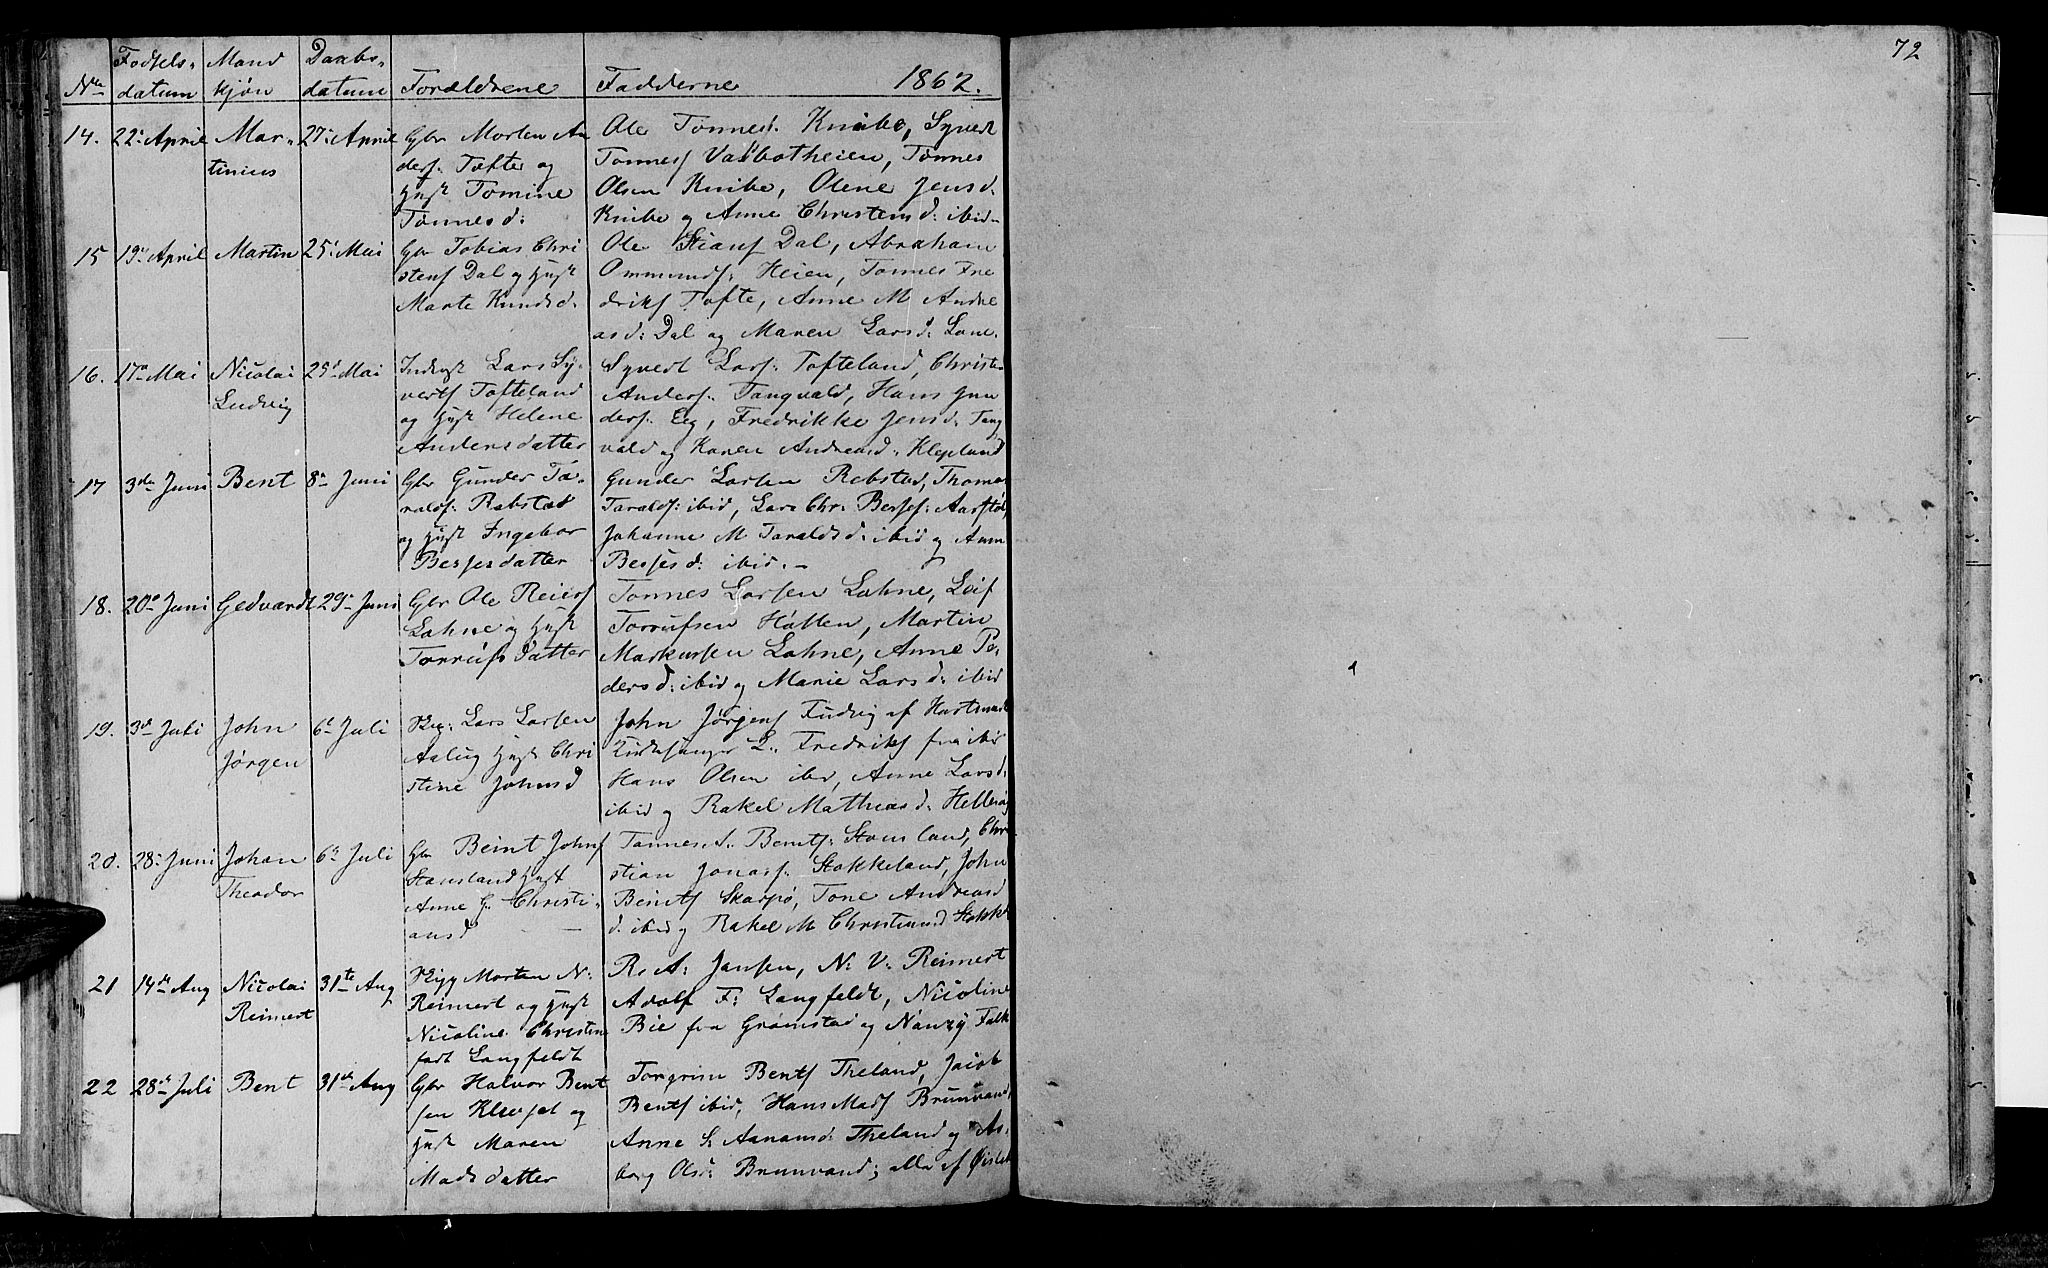 72
1862.
No Fødsels-datum Mandkjøn Daabsdatum Forældrene Fadderne
14. 22: April Martinius 27: April
Gbr Morten An
ders: Tofte og
Hust Tomine
Tønnesd:
Ole Tønnes: Knibe, Syvert
Tønness Valbotheien, Tønnes
Olsen Knibe, Olene Jensd:
Knibe og Anne Christensd: ibid
15 19 April Martin 25 Mai
Gbr Tobias Chri
stens Dal og Hust
Marte Knudsd:
Ole Dal, Abraham
Ommunds: Heien, Tønnes Fre
driks Tofte, Anne M Andre
asd: Dal og Maren Larsd: Lone.
16. 17 Mai Nicolai Ludvig 25 Mai
Indrst Lars Sy-
verts Tofteland
og Hust Helene
Andersdatter
Syvert Lars: Tofteland, Christen
Anders: Tangvald, Hans Gun
ders: Eg, Fredrikke Jensd: Tang
vald og Karen Andreasd: Klepland
17 3die Juni Bent 8 Juni
Gbr Gunder Ta-
ralds: Rebstad
og Hust Ingebor
Bersesdatter
Gunder Larsen Rebstad, Thomas
Taralds: ibid, Lars Chr: Berses: Aarstøl,
Johanne M Taraldsd: ibid og Anne
Bersesd: ibid. –
18. 20 Juni Gedvardt 29 Juni
Gbr Ole Reiers
Lohne og Hust
Torrufsdatter
Tønnes Larsen Lohne, Leif
Torrufsen Hatten, Martin
Markussen Lohne, Anne Pe-
dersd: ibid og Marie Larsd: ibid
19. 3de Juli John Jørgen 6 Juli
Lars Larsen
Hust Chri
stine Johnsd
John Jørgens af
Kirkesanger L. Fredriks fra ibid
Hans Olsen ibid, Anne Larsd:
ibid og Rakel Mathiasd:
20. 28: Juni Johan Theodor 6 Juli
Gbr Beint Johns
Stousland Hust
Anne G. Christi-
ansd
Tønnes A. Bents: Stousland, Chri
stian Jonas: Stokkeland, John
Beints Skarpø, Tone Andreas
d: ibid og Rakel M Christensd
21 14de Aug Nicolai Reimert 31te Aug
Morten N:
Reimert og Hust
Nicoline Christine
født Langfeldt
Rs A: Jansen, N: V: Reimert
Adolf F: Langfeldt, Nicoline
Bie fra Grømstad og Nanzy Falk
22 28de Juli Bent 31te Aug
Gbr Halvor Bent
sen Klepsel og
Hust Maren
Madsdatter
Torgrim Bents Theland, Jacob
Bents ibid, Hans Mads Brunvand,
Anne S: Aanonsd: Theland og As-
borg Olsd: Brunvand; alle af Øisleb